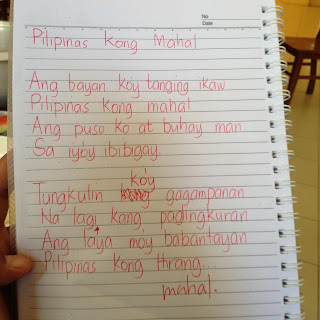 No
Date
Pilipinas Kong Mahal
Ang bayan ko'y tanging ikaw
Pilipinas kong mahal
Ang puso ko at buhay man
Sa iyoy ibibigay.
Tungkulin ko'y gagampanan
Na lagi kang paglingkuran
Ang laya mo'y babantayan
Pilipinas kong Hirang...
mahal.